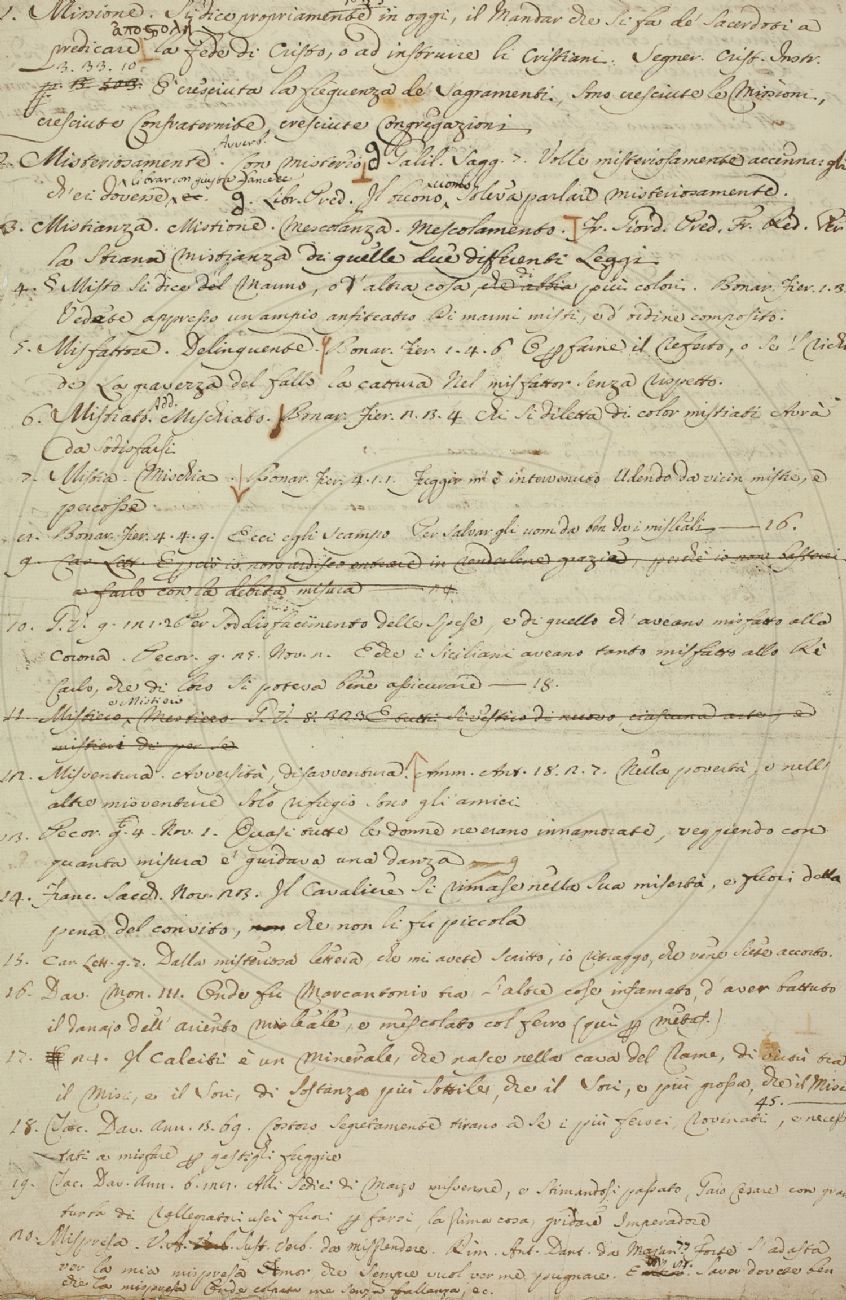 1. Missione. Si dice propriamente in oggi, il Mandar che si fa de' Sacerdoti a
αποστολή
predicare la fede di Cristo, o ad instruire li Cristiani. Segner. Crist. Instr.
3. 33. 10.
E' cresciuta la frequenza de' Sagramenti, sono cresciute le Missioni,
cresciute Confraternite, cresciute Congregazioni
2. Misteriosamente. Avverb. Con misterio. Galil. Sagg. 7. Volle misteriosamente accennargli
ch'ei dovesse, librar con giusta lance ec. Libr. Pred. Il buono uomo soleva parlare misteriosamente.
3. Mistianza. Mistione. Mescolanza. Mescolamento. Fr. Giord. Pred. Fr. Red. Per
la strana mistianza di quelle due differenti Leggi
4. § Misto si dice del Marmo, o d'altra cosa, di più colori. Bonar. Fier. 1. 3.
Vedete appresso un ampio anfiteatro Di marmi misti, e d'ordine composito.
5. Misfattore. Delinquente. Bonar. Fier. 1. 4. 6 E per farne il referto, o se 'l richie
de La gravezza del fallo la cattura Nel misfattor senza rispetto.
6. Mistiato. Add. Mischiato. Bonar. Fier. 2. 3. 4 Chi si diletta di color mistiati Avrà
da sodisfarsi
7. Mistia. Mischia. Bonar. Fier. 4. 1. 1. Fuggir m'è intervenuto Udendo da vicin mistie, e
percosse
Bonar. Fier. 4. 4. 9. Ecci egli scampo Per salvar gli uomi da ben da i misliali 16.
9. Car. Lett. E però io non ardisco entrare in rendervene grazie, perchè io non basterei
a farlo con la debita misura 14
10. G. V. 9. 121. 26 Per soddisfacimento delle spese, e di quello ch'aveano misfatto alla
Corona. Pecor. g. 25. Nov. 2. E che i Siciliani aveano tanto misfatto allo Re
Carlo, che di loro si poteva bene assicurare 18.
11. Mistiero, e Mistiero Mestiero. G. V. 8. E tutti si vestiro di nuovo ciascuna arte, e
mistieri di per se
12. Misventura. Avversità, disavventura. Amm. Ant. 18. 2. 7. Nella povertà, e nell'
altre misventure solo rifugio sono gli amici
13. Pecor. g. 4. Nov. 1. Quasi tutte le donne n'erano innamorate, veggiendo con
quanta misura e' guidava una danza 9
14. Franc. Sacch. Nov. 123. Il Cavaliere si rimase nella sua misertà, e fuori della
pena del convito, che non li fu piccola
15. Car. Lett. 9. 7. Dalla misteriosa lettera, che mi avete scritto, io ritraggo, che vene siete accorto.
16. Dav. Mon. 111. Onde fu Marcantonio tra l'altre cose infamato, d'aver battuto
il danajo dell'ariento misleale, e mescolato col ferro (qui per metaf.)
17. 14. Il Calciti è un minerale, che nasce nella cava del Rame, di tra
il Misi, e il Sori, di sostanza più sottile, che il Sori, e più grossa, che il Misi
45.
18. Tac. Dav. Ann. 15. 69. Costoro segretamente tirano a se i più feroci, rovinati, e necessi
tati a misfare per gastighi fuggire
19. Tac. Dav. Ann. 6. 121. Alli sedici di Marzo misvenne, e stimandosi passato, Gaio Cesare con gran
turba di rallegratori uscì fuori per farsi, la prima cosa, gridare Imperadore
20. Mispresa. Sust. Verb. da misprendere. Rim. Ant. Dant. da Forte s'adasta
ver la mia mispresa Amor che sempre vuol ver me pugnare. E Saver dovete ben
che la mispresa Onde colpata me senza fallanza, ec.